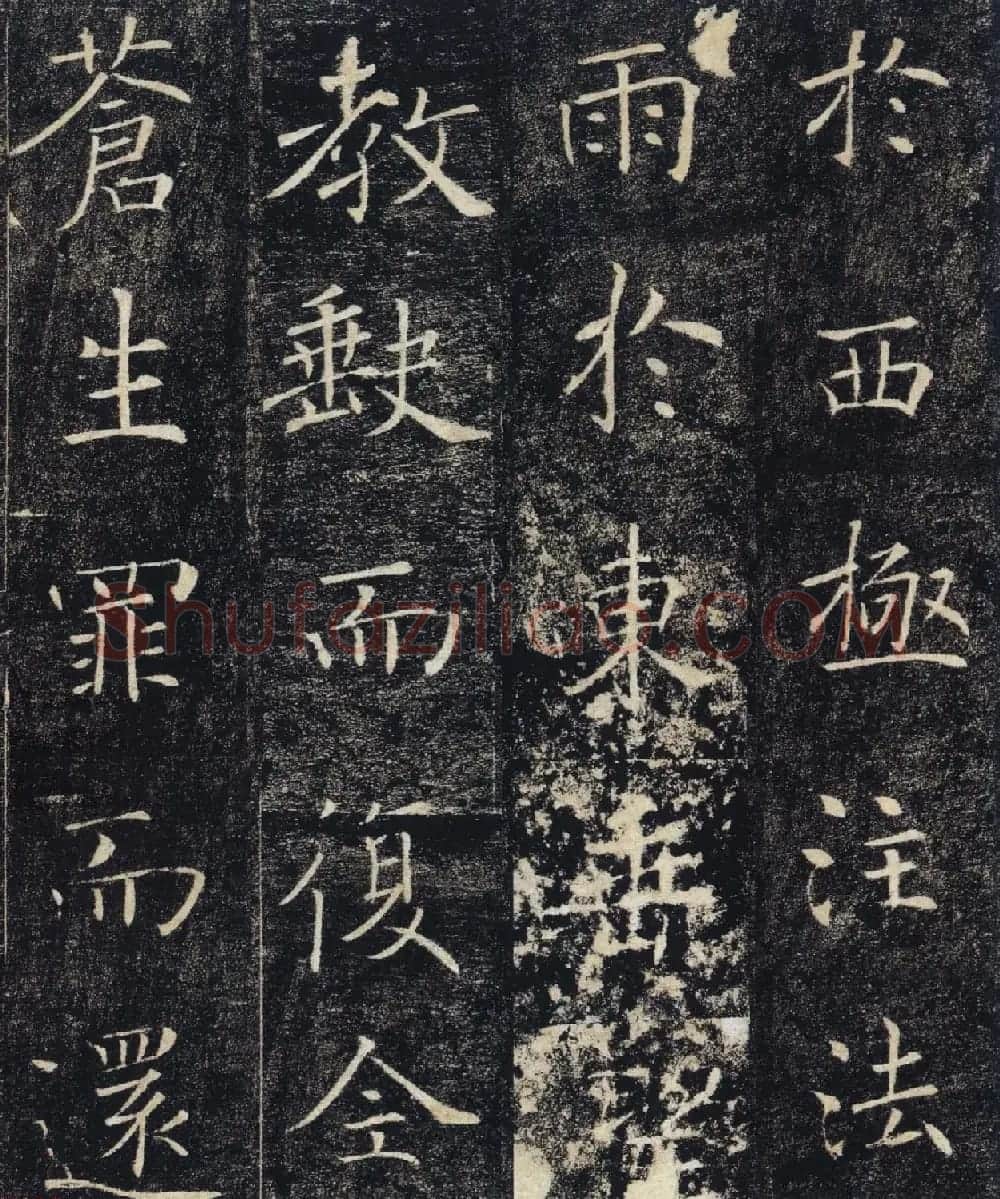 於西極注法
雨於東垂
教缺而復全
蒼生罪而還
Shufaziliao.COM